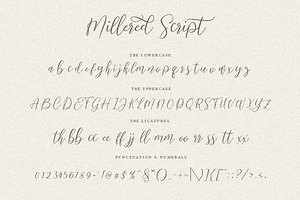 Millered Script
THE LOWERCASE
a b c d e f g h i j k l m n o p q r s t u v w x y z
THE UPPERCASE
A B C D E F G H I J K L M N O P Q R S T U V W X Y Z
THE LIGATURES
th bb cc ee ff jj ll mm oo rr ss tt
PUNCTUATION & NUMERALS
0123456789